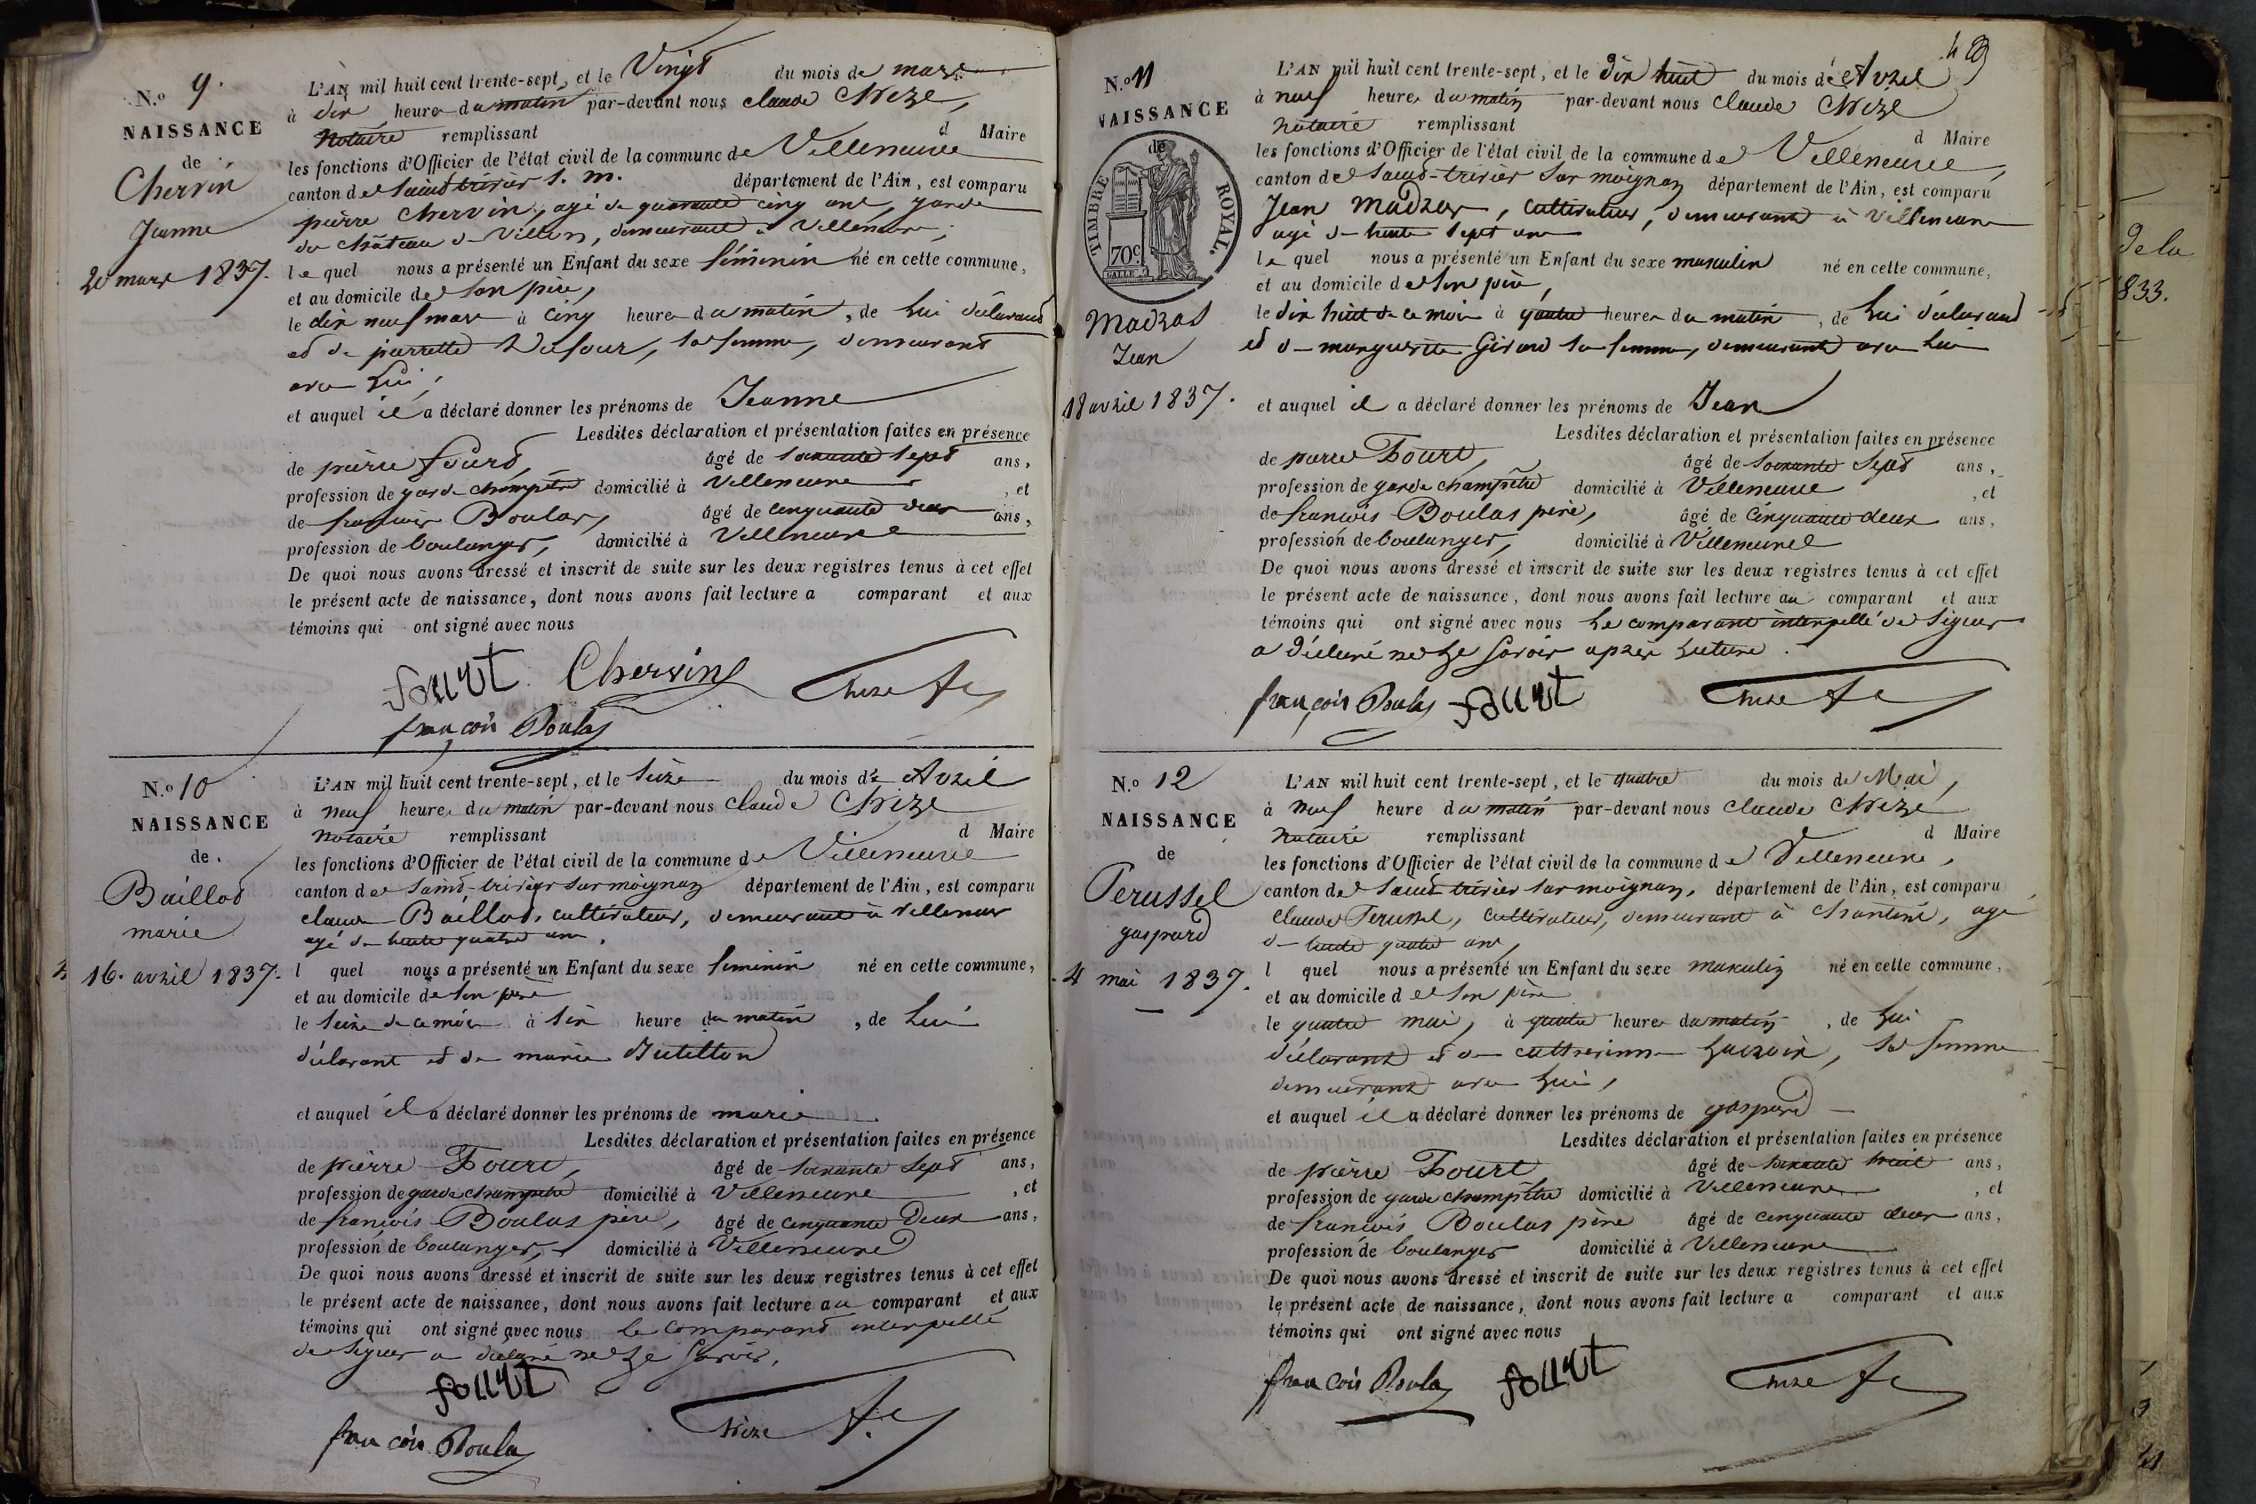 N.º 9.
NAISSANCE
de
Chervin
Jeanne
20 mars 1837.
L'AN mil huit cent trente-sept, et le Vingt du mois de mars
à dix heure du matin par-devant nous claude Chize,
Notaire remplissant d Maire
les fonctions d'Officier de l'état civil de la commune de Villeneuve
canton de saint trivier s. m. département de l'Ain, est comparu
pierre Chervin, agé de quarante cinq ans, garde
du château de Villon, demeurant à Villeneuve,
le quel nous a présenté un Enfant du sexe féminin né en cette commune,
et au domicile de son père,
le dix neuf mars à cinq heure du matin, de lui déclarant
et de pierrette Dufour, sa femme, demeurant
avec lui,
et auquel il a déclaré donner les prénoms de Jeanne
Lesdites déclaration et présentation faites en présence
de pierre fourt, âgé de soixante sept ans,
profession de garde champêtre domicilié à Villeneuve, et
de françois Boulas, âgé de cinquante deux ans,
profession de boulanger, domicilié à Villeneuve
De quoi nous avons dressé et inscrit de suite sur les deux registres tenus à cet effet
le présent acte de naissance, dont nous avons fait lecture a comparant et aux
témoins qui ont signé avec nous
fourt Chervin Chize
françois Boulas
N.º 10
NAISSANCE
de.
Baillod
marie
16. avril 1837.
L'AN mil huit cent trente-sept, et le seize du mois de Avril
à neuf heure du matin par-devant nous claude Chize
Notaire remplissant d Maire
les fonctions d'Officier de l'état civil de la commune de Villeneuve
canton de saint-trivier sur moignan département de l'Ain, est comparu
claude Baillod, cultivateur, demeurant à Villeneuve
agé de trente quatre ans,
l quel nous a présenté un Enfant du sexe féminin né en cette commune,
et au domicile de son père
le seize de ce mois à six heure du matin, de lui
déclarant et de marie
et auquel il a déclaré donner les prénoms de marie
Lesdites déclaration et présentation faites en présence
de pierre Fourt, âgé de soixante sept ans,
profession de garde champêtre domicilié à Villeneuve, et
de françois Boulas père, âgé de cinquante Deux ans,
profession de boulanger, domicilié à Villeneuve
De quoi nous avons dressé et inscrit de suite sur les deux registres tenus à cet effet
le présent acte de naissance, dont nous avons fait lecture au comparant et aux
témoins qui ont signé avec nous le comparant interpellé
de signer a déclaré ne le savoir.
fourt
françois Boulas Chize
49
N.º 11
NAISSANCE
de
TIMBRE ROYAL.
70c.
Madras
Jean
18 avril 1837.
L'AN mil huit cent trente-sept, et le dix huit du mois de Avril
à neuf heure du matin par-devant nous claude Chize
notaire remplissant d Maire
les fonctions d'Officier de l'état civil de la commune de Villeneuve,
canton de saint-trivier sur moignan département de l'Ain, est comparu
Jean Madras, cultivateur, demeurant à Villeneuve
agé de trente sept ans
le quel nous a présenté un Enfant du sexe masculin né en cette commune,
et au domicile de son père,
le dix huit de ce mois à quatre heure du matin, de lui déclarant
et de marguerite Girard sa femme, demeurante avec lui
et auquel il a déclaré donner les prénoms de Jean
Lesdites déclaration et présentation faites en présence
de pierre Fourt, âgé de soixante sept ans,
profession de garde champêtre domicilié à Villeneuve, et
de françois Boulas père, âgé de cinquante deux ans,
profession de boulanger, domicilié à Villeneuve
De quoi nous avons dressé et inscrit de suite sur les deux registres tenus à cet effet
le présent acte de naissance, dont nous avons fait lecture au comparant et aux
témoins qui ont signé avec nous le comparant interpellé de signer
a déclaré ne le savoir après lecture.
françois Boulas fourt Chize
N.º 12
NAISSANCE
de
Perussel
gaspard
4 mai 1837.
L'AN mil huit cent trente-sept, et le quatre du mois de Mai,
à neuf heure du matin par-devant nous claude Chize
notaire remplissant d Maire
les fonctions d'Officier de l'état civil de la commune de Villeneuve,
canton de saint trivier sur moignan, département de l'Ain, est comparu
claude Perussel, cultivateur, demeurant à agé
de trente quatre ans,
l quel nous a présenté un Enfant du sexe masculin né en cette commune,
et au domicile de son père
le quatre mai, à quatre heure du matin, de lui
déclarant et de sa femme
demeurant avec lui,
et auquel il a déclaré donner les prénoms de gaspard
Lesdites déclaration et présentation faites en présence
de pierre Fourt âgé de soixante huit ans,
profession de garde champêtre domicilié à Villeneuve, et
de françois Boulas père âgé de cinquante deux ans,
profession de boulanger domicilié à Villeneuve
De quoi nous avons dressé et inscrit de suite sur les deux registres tenus à cet effet
le présent acte de naissance, dont nous avons fait lecture a comparant et aux
témoins qui ont signé avec nous
françois Boulas fourt Chize
de la
833.